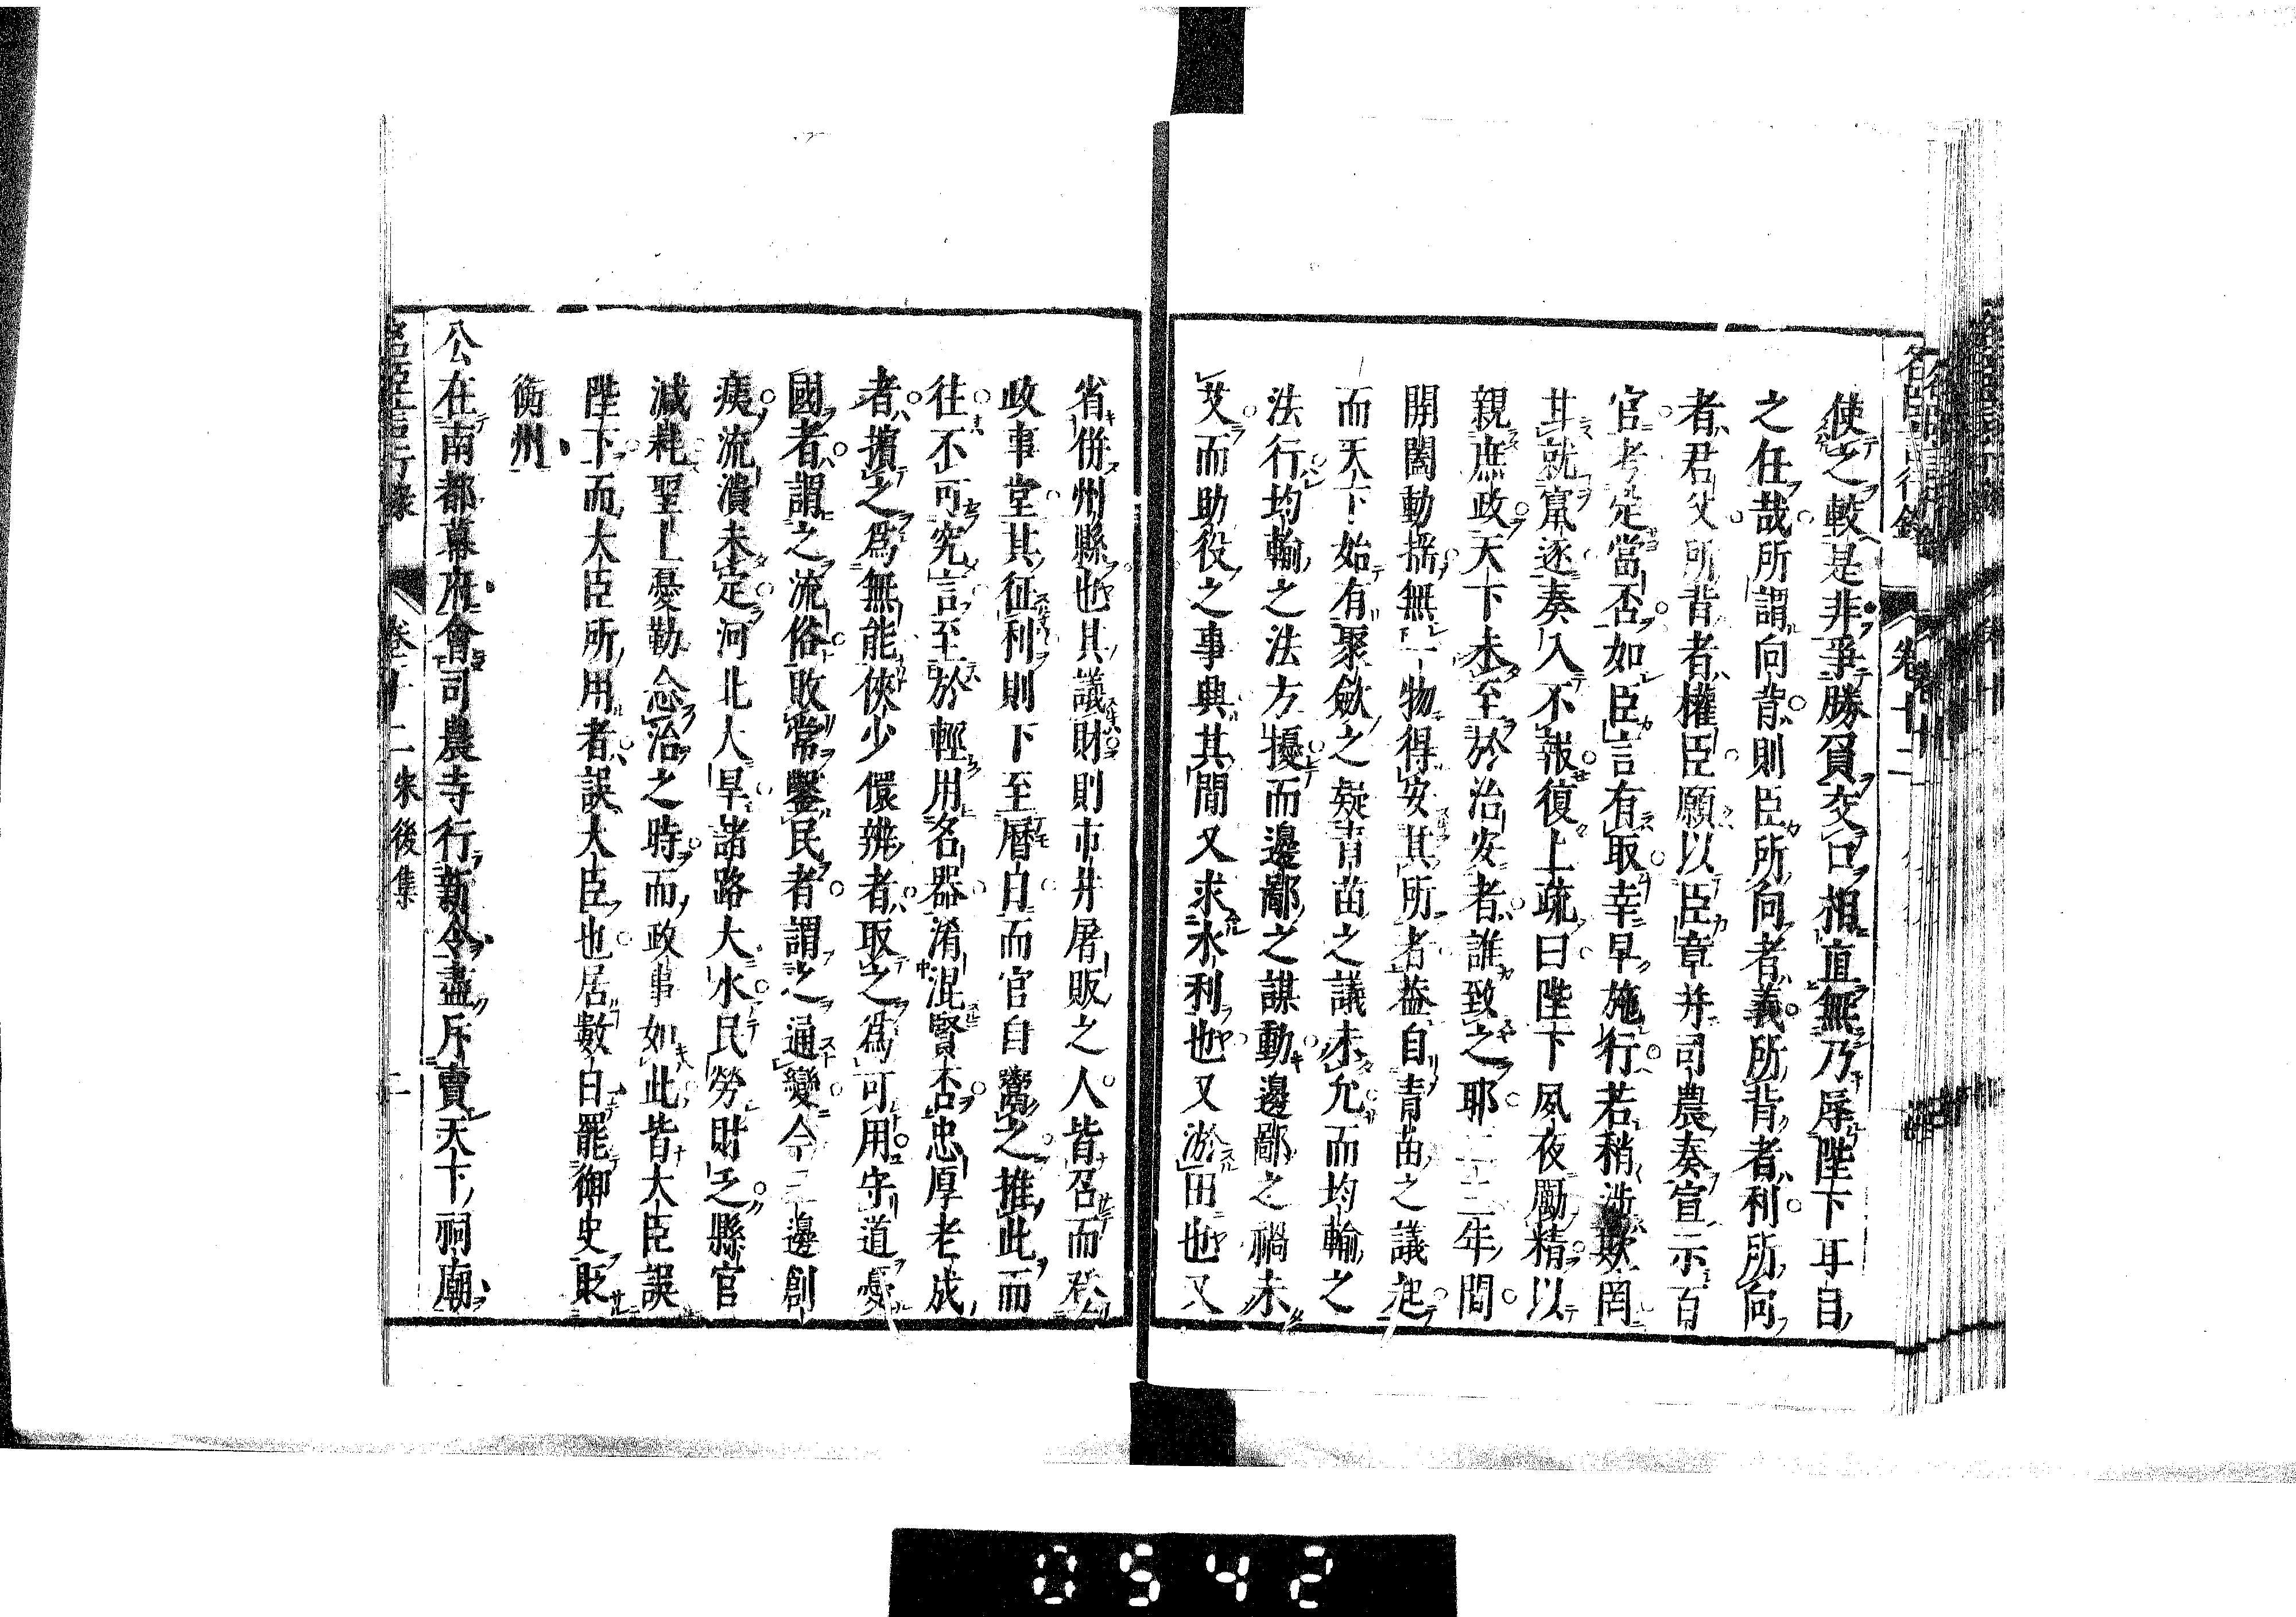 名臣言行錄 卷十二
使之較是非爭勝負交口相直無乃辱陛下耳目
之任哉所謂向背則臣所向者義所背者利所向
者君父所背者權臣願以臣章并司農奏宣示百
官考定當否如臣言有取幸早施行若稍涉欺罔
甘就竄逐奏入不報復上疏曰陛下夙夜勵精以
親庶政天下未至於治安者誰致之耶二三年間
開闔動搖無一物得安其所者蓋自青苗之議起
而天下始有聚斂之疑青苗之議未允而均輸之
法行均輸之法方擾而邊鄙之謀動邊鄙之禍未
艾而助役之事興其間又求水利也又淤田也又
省併州縣也其議財則市井屠販之人皆召而登
政事堂其征利則下至曆日而官自鬻之推此而
往不可究言至於輕用名器淆混賢否忠厚老成
者擯之為無能俠少儇辨者取之為可用守道憂
國者謂之流俗敗常鑿民者謂之通變今三邊創
痍流潰未定河北大旱諸路大水民勞財乏縣官
減耗聖上憂勤念治之時而政事如此皆大臣誤
陛下而大臣所用者誤大臣也居數日罷御史貶
衡州
公在南都幕府會司農寺行新令盡斥賣天下祠廟
名臣言行錄 卷十二 朱後集
0542